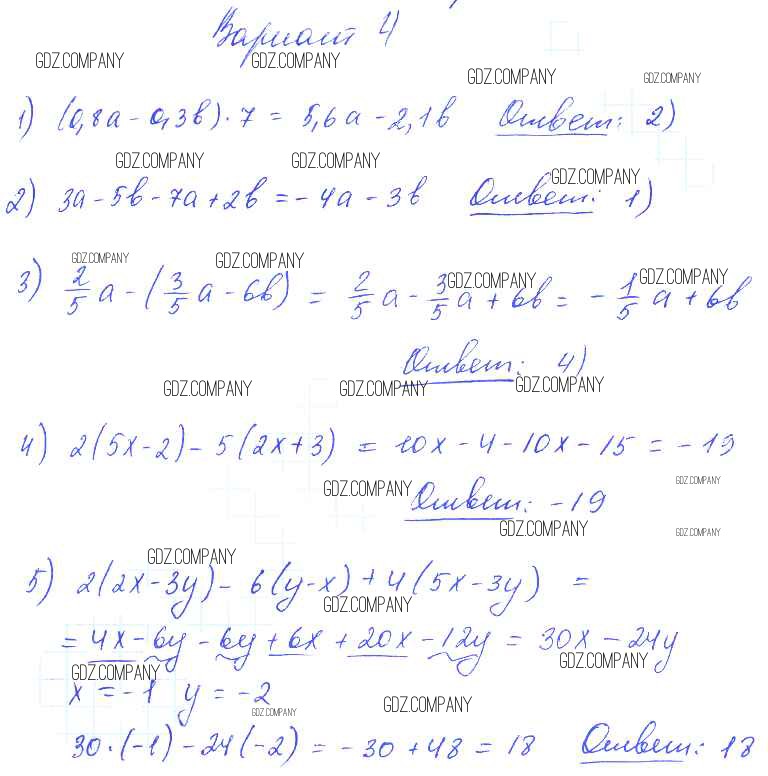 Вариант 4
GDZ.COMPANY GDZ.COMPANY GDZ.COMPANY GDZ.COMPANY
1) (0,8a - 0,3b) · 7 = 5,6a - 2,1b Ответ: 2)
GDZ.COMPANY GDZ.COMPANY GDZ.COMPANY
2) 3a - 5b - 7a + 2b = - 4a - 3b Ответ: 1)
GDZ.COMPANY GDZ.COMPANY GDZ.COMPANY GDZ.COMPANY
3) 2/5 a - (3/5 a - 6b) = 2/5 a - 3/5 a + 6b = - 1/5 a + 6b
Ответ: 4)
GDZ.COMPANY GDZ.COMPANY GDZ.COMPANY
4) 2(5x - 2) - 5(2x + 3) = 10x - 4 - 10x - 15 = - 19
GDZ.COMPANY GDZ.COMPANY
Ответ: - 19
GDZ.COMPANY GDZ.COMPANY
GDZ.COMPANY
5) 2(2x - 3y) - 6(y - x) + 4(5x - 3y) =
GDZ.COMPANY
= 4x - 6y - 6y + 6x + 20x - 12y = 30x - 24y
GDZ.COMPANY GDZ.COMPANY
x = - 1 y = - 2
GDZ.COMPANY GDZ.COMPANY
30 · (-1) - 24(-2) = - 30 + 48 = 18 Ответ: 18